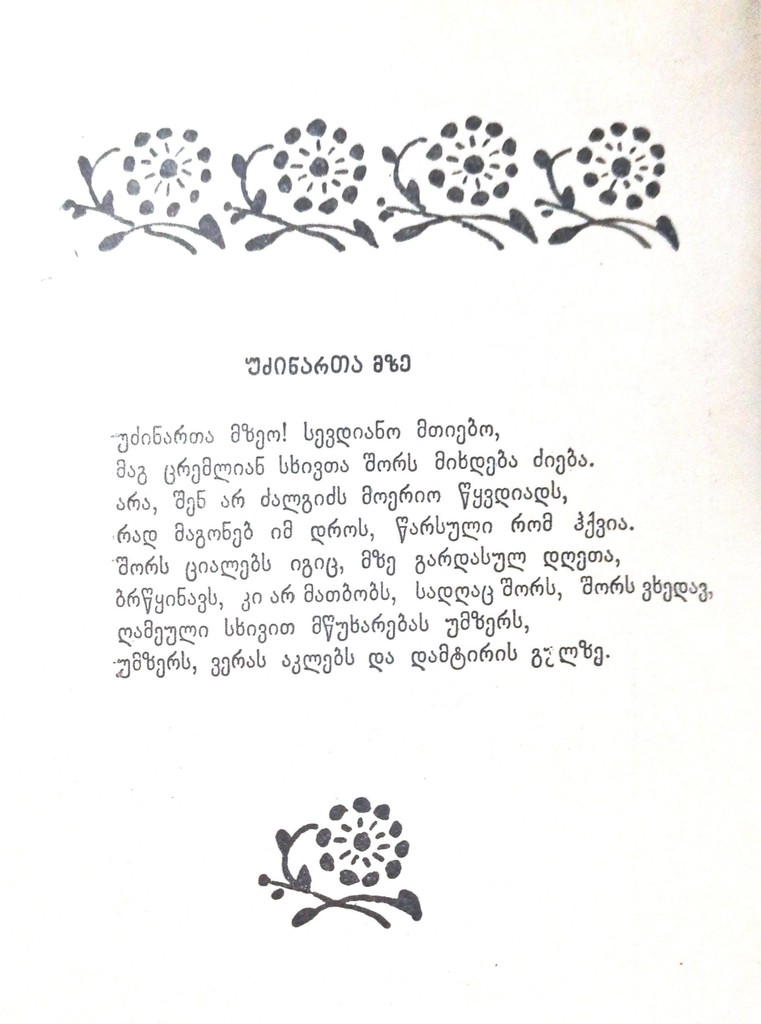 უძინართა მზე
უძინართა მზეო! სევდიანო მთიებო,
მაგ ცრემლიან სხივთა შორს მიხდება ძიება.
არა, შენ არ ძალგიძს მოერიო წყვდიადს,
რად მაგონებ იმ დროს, წარსული რომ ჰქვია.
შორს ციალებს იგიც, მზე გარდასულ დღეთა,
ბრწყინავს, კი არ მათბობს, სადღაც შორს, შორს ვხედავ,
ღამეული სხივით მწუხარებას უმზერს,
უმზერს, ვერას აკლებს და დამტირის გულზე.